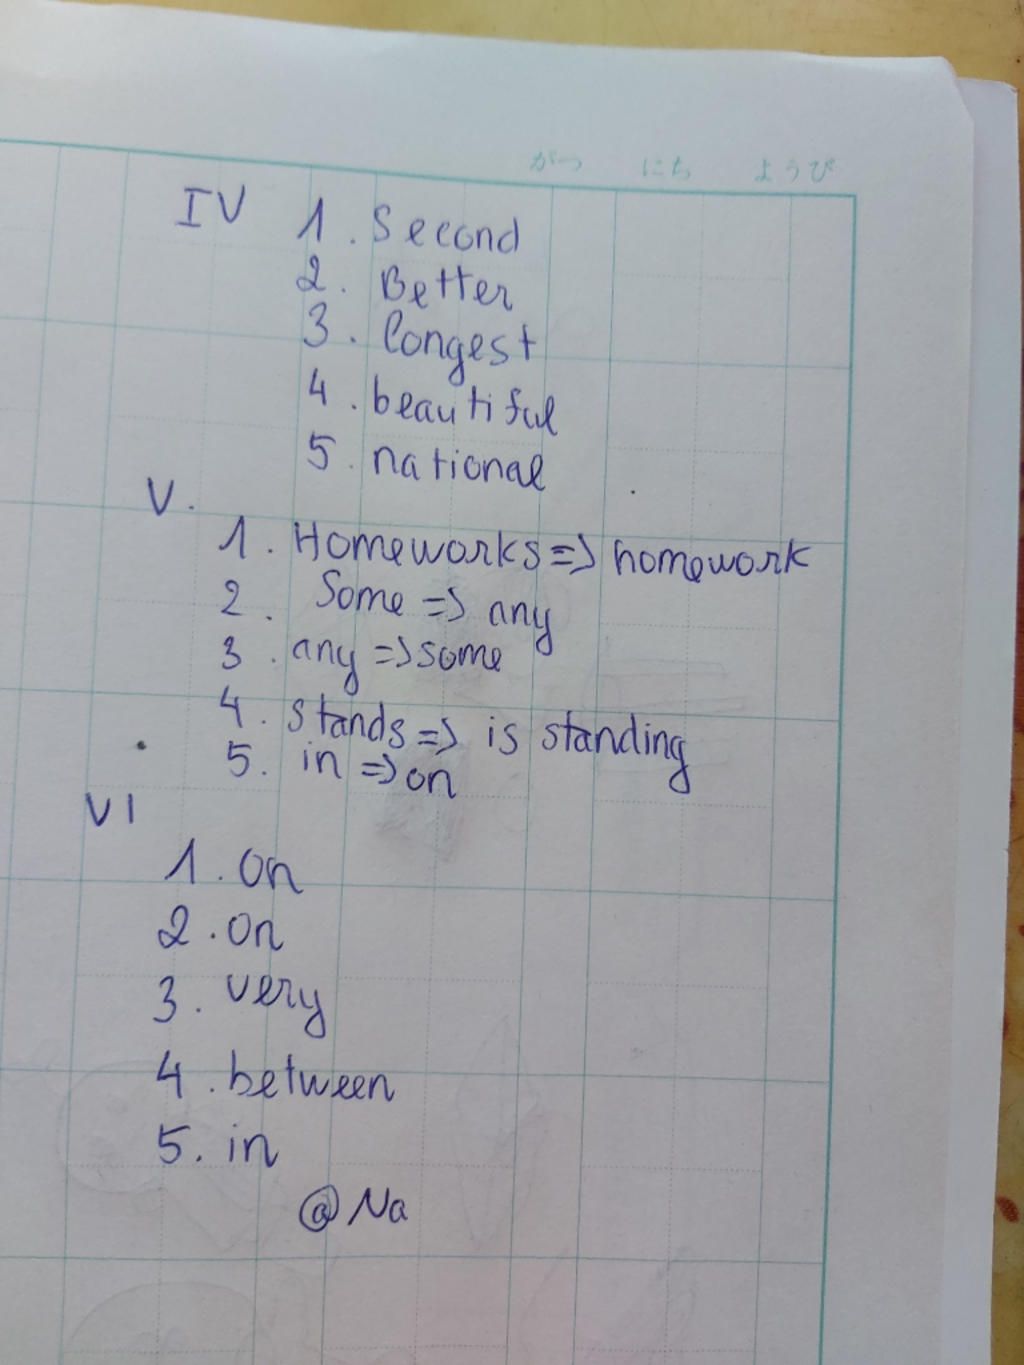 がつ にち ようび
IV 1. Second
2. Better
3. longest
4. beautiful
5. national
V.
1. Homeworks => homework
2. Some => any
3. any => some
4. stands => is standing
5. in => on
VI
1. on
2. on
3. very
4. between
5. in
@Na